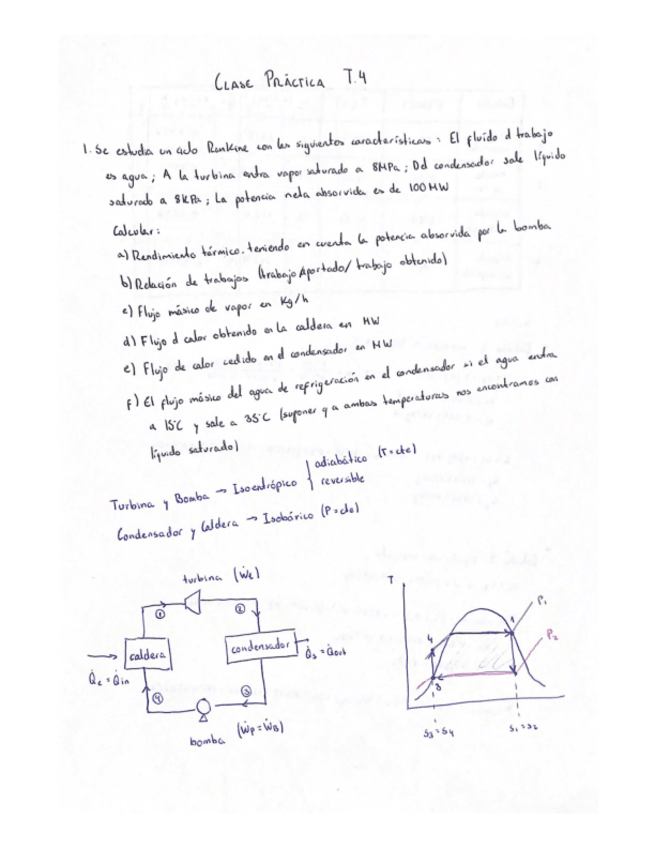 CLASE PRÁCTICA T.4
1. Se estudia un ciclo Rankine con las siguientes características: El fluido d trabajo
es agua; A la turbina entra vapor saturado a 8MPa; Del condensador sale líquido
saturado a 8kPa; La potencia neta absorvida es de 100 MW
Calcular:
a) Rendimiento térmico. teniendo en cuenta la potencia absorvida por la bomba
b) Relación de trabajos (trabajo aportado/ trabajo obtenido)
c) Flujo másico de vapor en Kg/h
d) Flujo d calor obtenido en la caldera en MW
e) Flujo de calor cedido en el condensador en MW
f) El flujo másico del agua de refrigeración en el condensador si el agua entra
a 15°C y sale a 35°C (suponer q a ambas temperaturas nos encontramos con
líquido saturado)
Turbina y Bomba → Isoentrópico
adiabático (T=cte)
reversible
Condensador y Caldera → Isobárico (P=cte)
turbina (Ẇt)
1
2
caldera
condensador
Q̇e = Q̇in
Q̇s = Q̇out
4
3
bomba (Ẇp=ẆB)
T
P1
P2
4
1
3
S3=S4
S1=S2